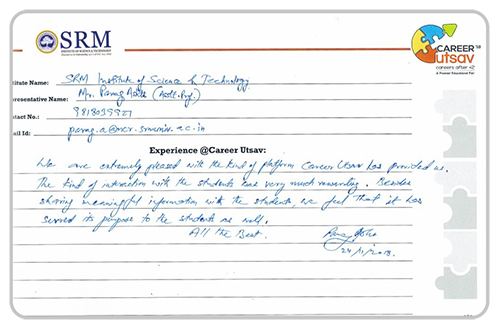 SRM
INSTITUTE OF SCIENCE & TECHNOLOGY
CAREER
utsav
careers after +2
A Premier Educational Fair
titute Name: SRM Institute of Science & Technology
epresentative Name: Mr. Parag (Asst. Prof.)
tact No.: 9818039927
mail Id: parag.a@ncr.srmuniv.ac.in
Experience @Career Utsav:
We are extremely pleased with the kind of platform Career Utsav has provided us.
The kind of interaction with the students was very much rewarding. Besides
sharing meaningful information with the students, we feel that it has
served its purpose to the students as well.
All the Best.
24/11/2018.